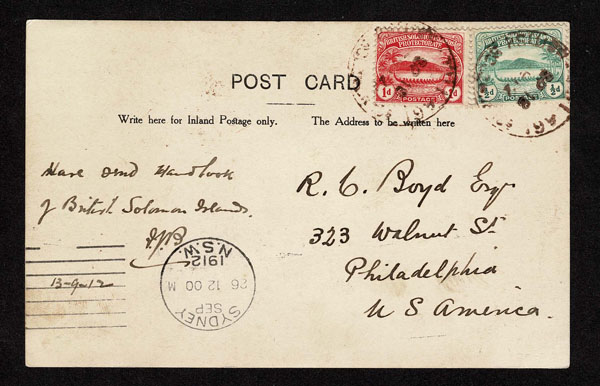 BRITISH SOLOMON ISLANDS
PROTECTORATE
1d POSTAGE 1d
BRITISH SOLOMON ISLANDS
PROTECTORATE
½d POSTAGE ½d
POST CARD
Write here for Inland Postage only.
The Address to be written here
Have send Handbook
of British Solomon Islands.
13-9-12
SYDNEY
SEP
26 12 00 M
1912
N.S.W.
R. C. Boyd Esqr
323 Walnut St
Philadelphia
U S America.